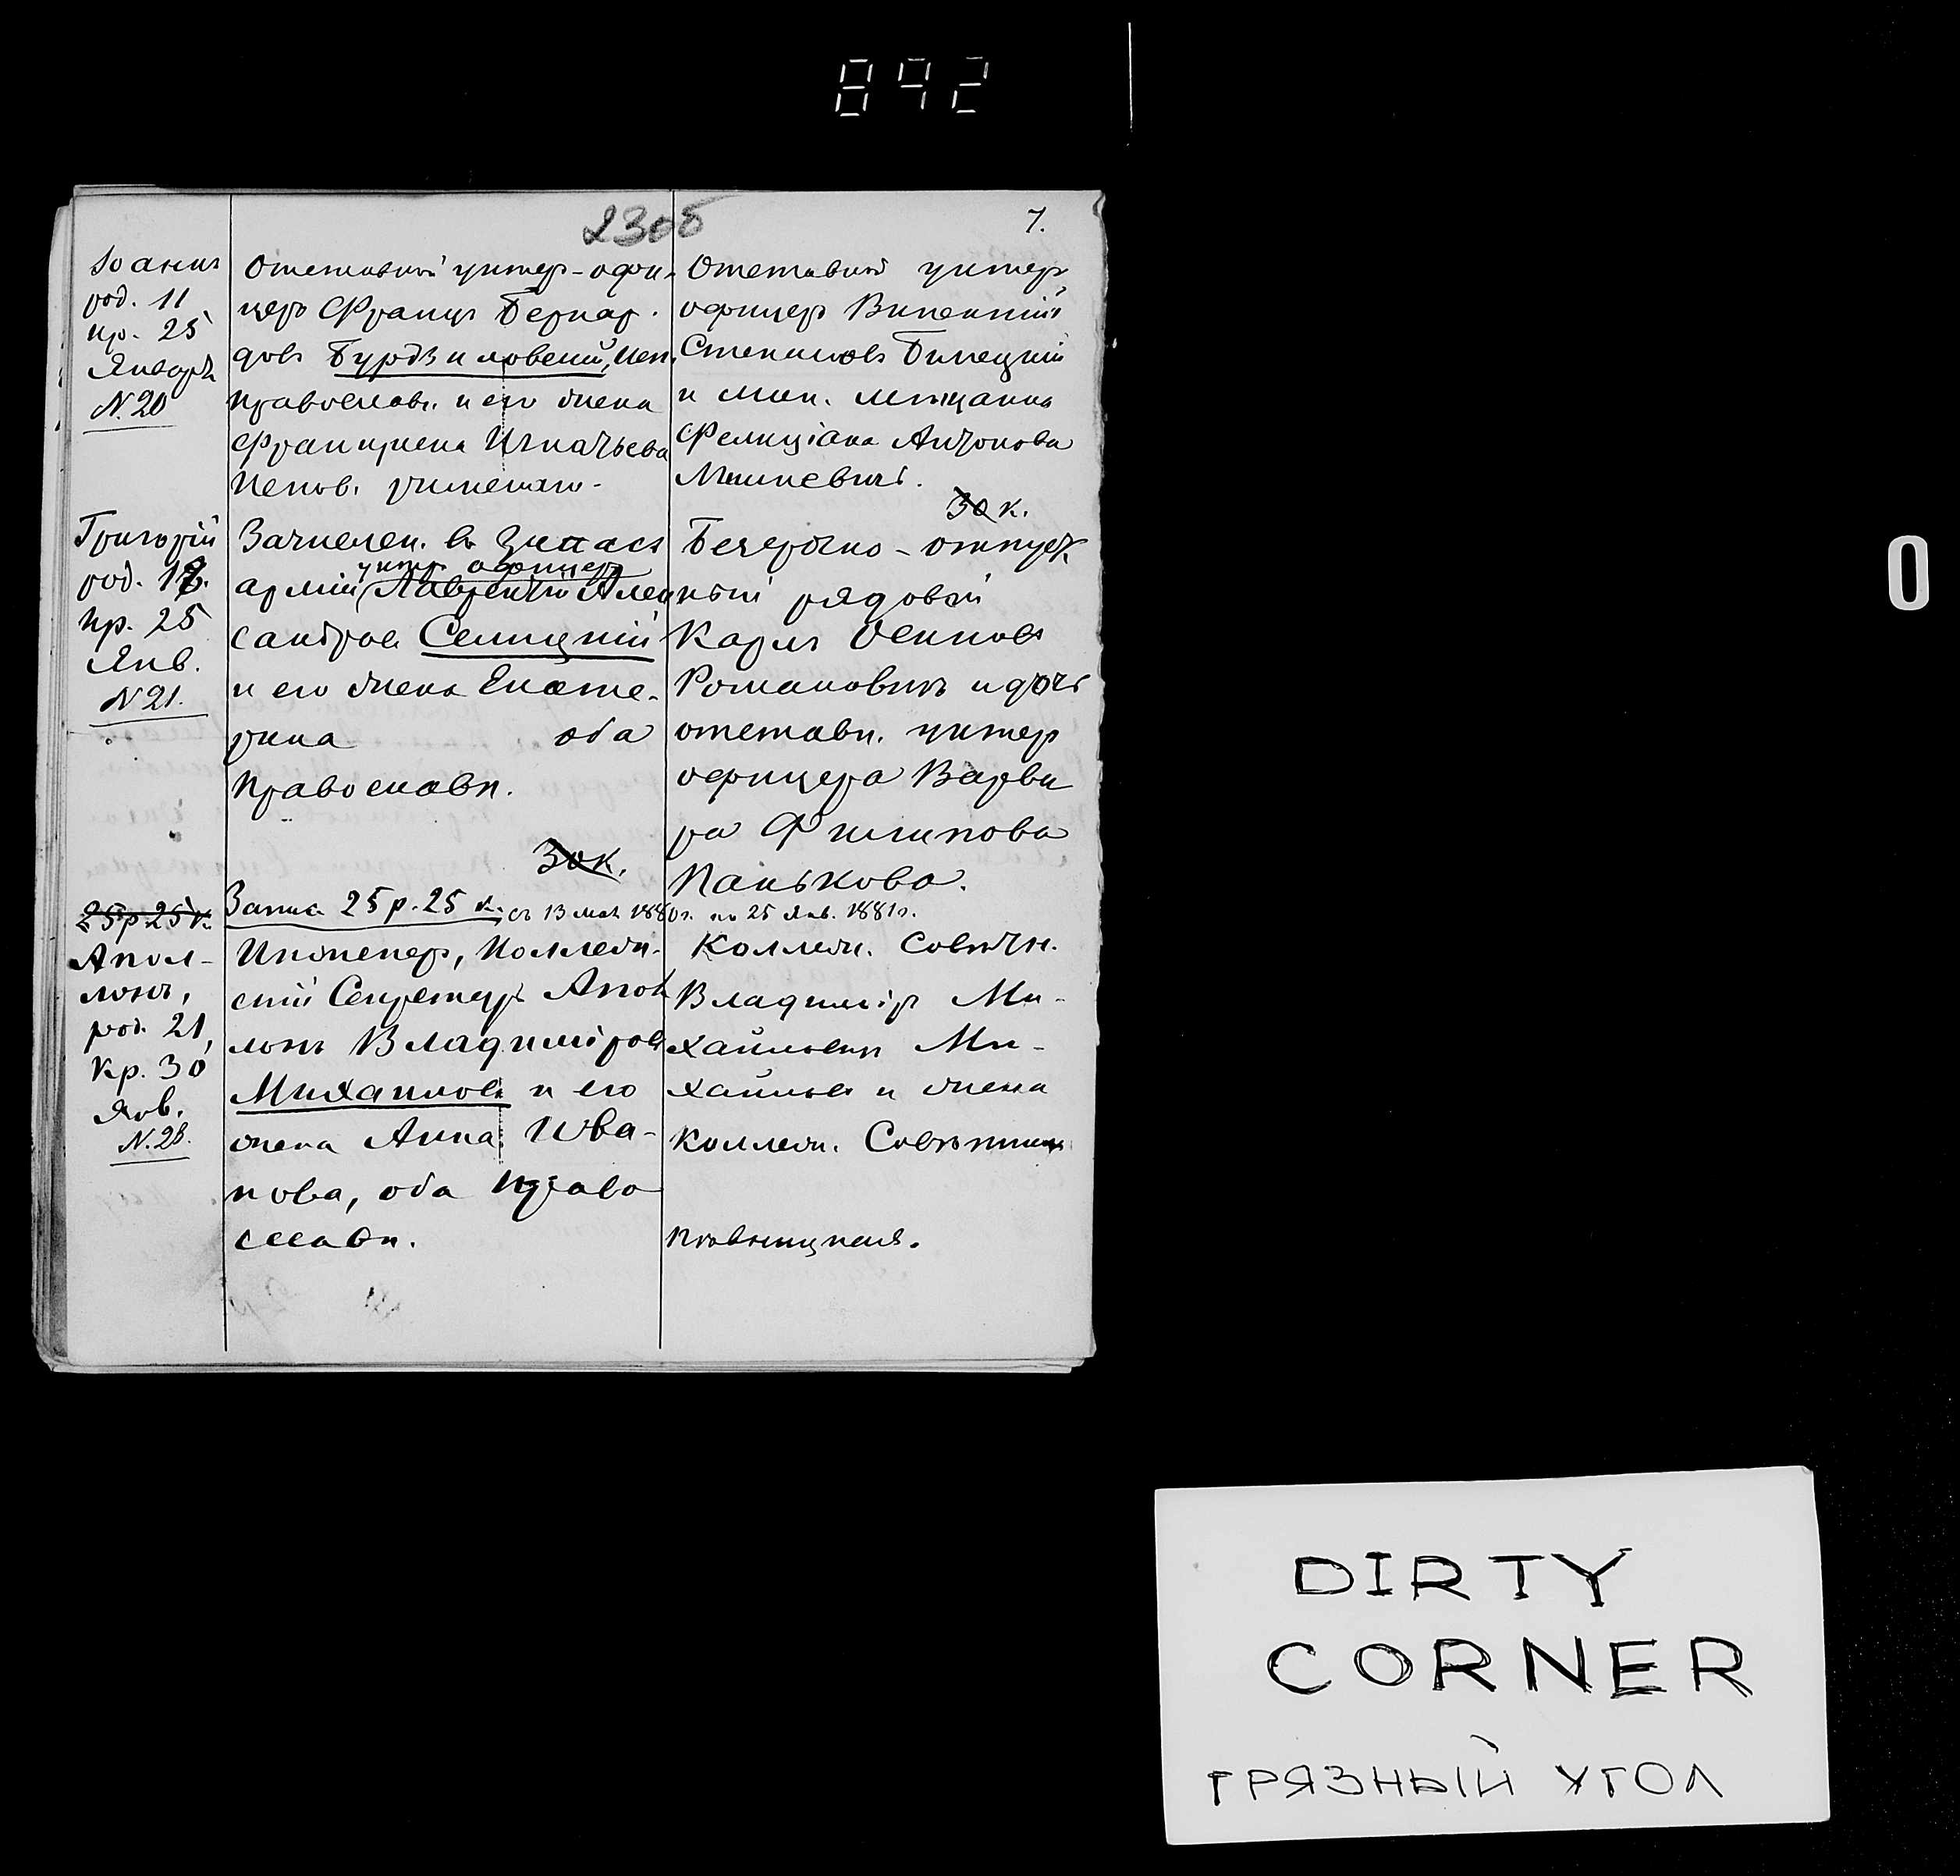 892
230б
7.
Іоаннъ
род. 11
кр. 25
Января
N. 20
Отставной унтер-офи-
церъ Францъ Бернар-
довъ Бурдзиловскій, исп.
православн. и его жена
Францишка Игнатьева
испов. римскаго.
Отставной унтеръ
офицеръ Викентій
Степановъ Билецкій
и мин. мѣщанка
Фелиціана Антонова
Мишкевичъ.
30 к.
Григорій
род. 18.
кр. 25
Янв.
N 21.
Зачислен. въ запасъ
унтр. офицеръ
арміи Лаврентій Алек
сандров Селицкій
и его жена Екате-
рина оба
православн.
30 к.
Безсрочно-отпуск
ный рядовой
Карлъ Осиповъ
Романовичъ и дочь
отставн. унтер
офицера Варва
ра Филипова
Панькова.
25 р 25 к.
Апол-
лонъ,
род. 21,
кр. 30
Янв.
N. 28.
Запис 25 р. 25 к. съ 13 мая 1880 г. по 25 Янв. 1881 г.
Инженеръ, Коллеж-
скій Секретарь Апол
лонъ Владиміровъ
Михаиловъ и его
жена Анна Ива-
нова, оба право
славн.
Коллеж. Совѣтн.
Владиміръ Ми-
хайловъ Ми-
хайловъ и жена
Коллеж. Совѣтника
0
DIRTY
CORNER
ГРЯЗНЫЙ УГОЛ